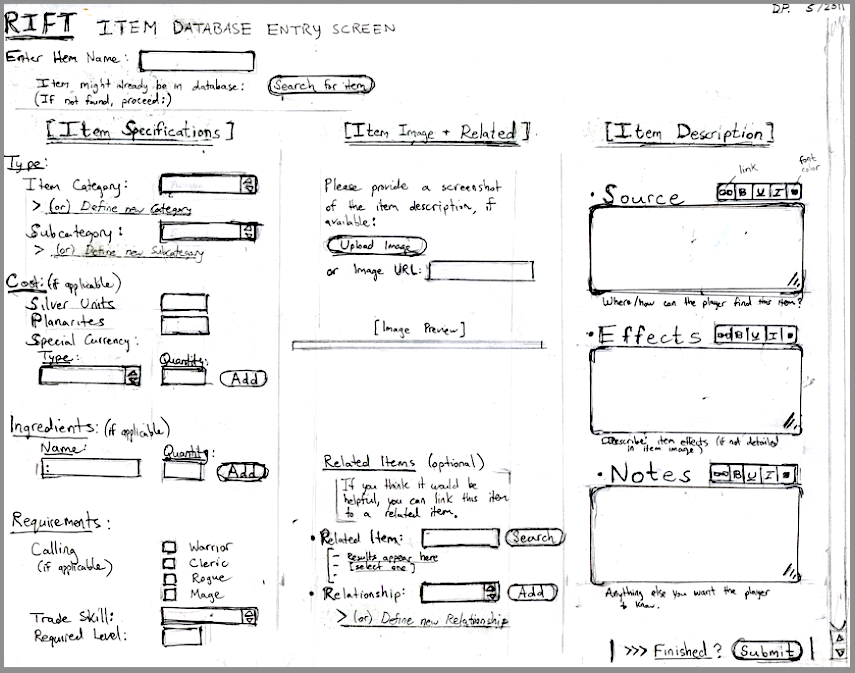 RIFT ITEM DATABASE ENTRY SCREEN
DP. 5/2011
Enter Item Name:
Item might already be in database:
Search for item
(If not found, proceed:)
[Item Specifications]
Type:
Item Category:
> (or) Define new Category
Subcategory:
> (or) Define new Subcategory
Cost: (if applicable)
Silver Units
Planarites
Special Currency:
Type:
Quantity:
Add
Ingredients: (if applicable)
Name:
Quantity:
:
Add
Requirements:
Calling
(if applicable)
Warrior
Cleric
Rogue
Mage
Trade Skill:
Required Level:
[Item Image + Related]
Please provide a screenshot
of the item description, if
available:
Upload Image
or Image URL:
[Image Preview]
Related Items (optional)
If you think it would be
helpful, you can link this item
to a related item.
• Related Item:
Search
- Results appear here
- [select one]
-
• Relationship:
Add
> (or) Define new Relationship
[Item Description]
link
font
color
• Source
B U I
Where/how can the player find this item?
• Effects
B U I
Describe item effects (if not detailed
in item image)
• Notes
B U I
Anything else you want the player
to know.
>>> Finished? Submit